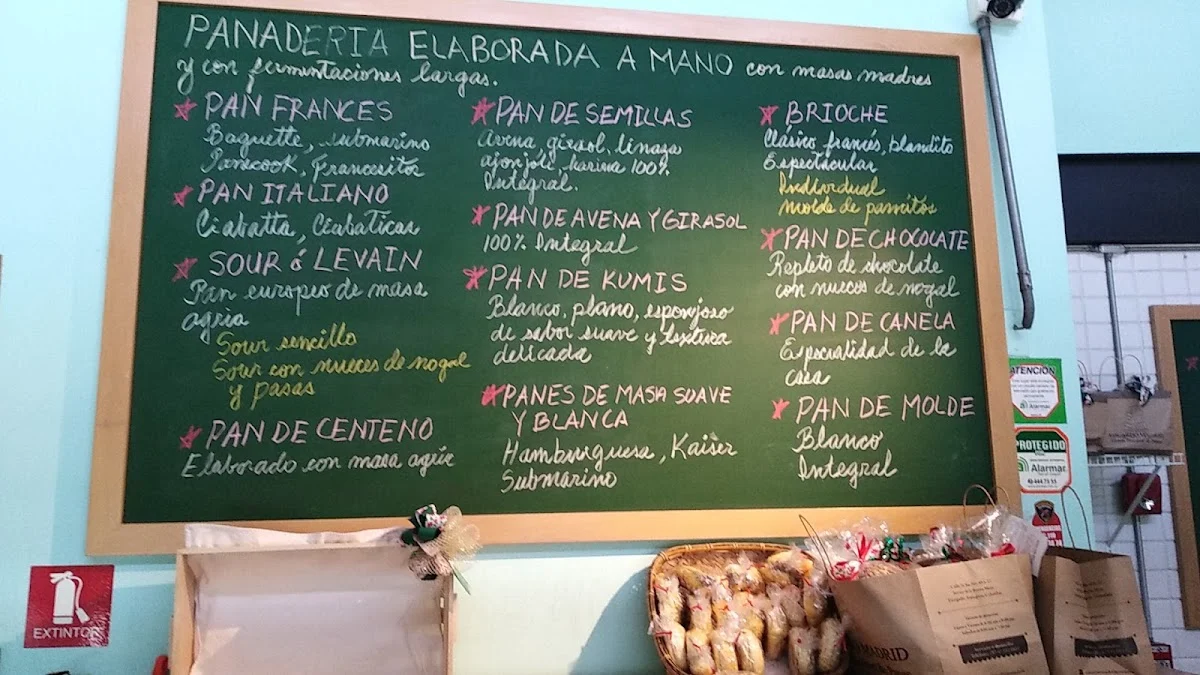 PANADERIA ELABORADA A MANO con masas madres
y con fermentaciones largas.
PAN FRANCES
Baguette, submarino
Panecook, Francesitos
PAN ITALIANO
Ciabatta, Ciabaticas
SOUR ó LEVAIN
Pan europeo de masa
agria
Sour sencillo
Sour con nueces de nogal
y pasas
PAN DE CENTENO
Elaborado con masa agria
PAN DE SEMILLAS
Avena, girasol, linaza
ajonjoli, harina 100%
Integral.
PAN DE AVENA Y GIRASOL
100% Integral
PAN DE KUMIS
Blanco, plano, esponjoso
de sabor suave y textura
delicada
PANES DE MASA SUAVE
Y BLANCA
Hamburguesa, Kaiser
Submarino
BRIOCHE
Clásico francés, blandito
Espectacular
Individual
molde de pancitos
PAN DE CHOCOLATE
Repleto de chocolate
con nueces de nogal
PAN DE CANELA
Especialidad de la
casa
PAN DE MOLDE
Blanco
Integral
ATENCIÓN
Alarmar
PROTEGIDO
Alarmar
EXTINTOR
MADRID